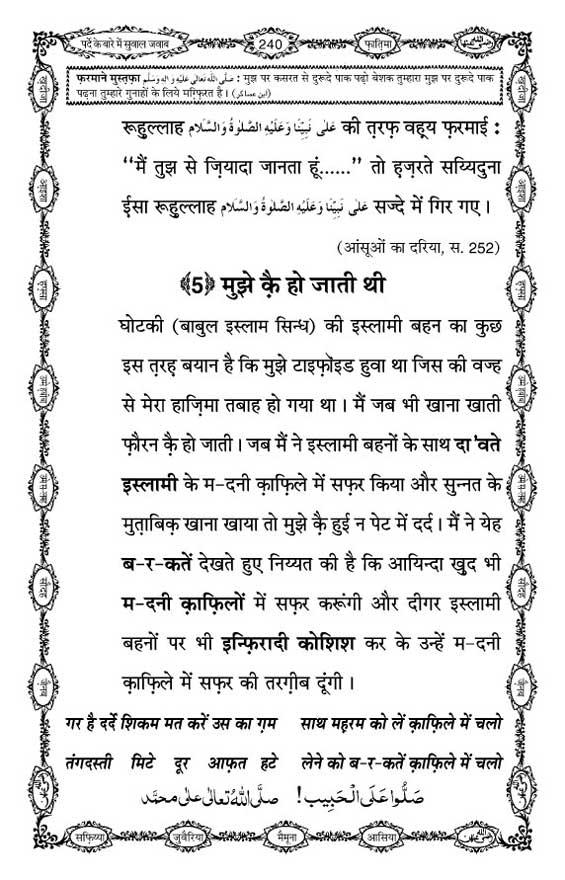 पर्दे के बारे में सुवाल जवाब 240 फ़ातिमा
फ़रमाने मुस्तफ़ा صلى الله تعالى عليه واله وسلم : मुझ पर कसरत से दुरूदे पाक पढ़ो बेशक तुम्हारा मुझ पर दुरूदे पाक
पढ़ना तुम्हारे गुनाहों के लिये मग़्फ़िरत है। (ابن عساکر)
रूहुल्लाह عَلٰی نَبِیِّنَا وَعَلَیْہِ الصَّلٰوۃُ وَالسَّلَام की त़रफ़ वह़्य फ़रमाई :
“मैं तुझ से ज़ियादा जानता हूं......” तो ह़ज़रते सय्यिदुना
ईसा रूहुल्लाह عَلٰی نَبِیِّنَا وَعَلَیْہِ الصَّلٰوۃُ وَالسَّلَام सज्दे में गिर गए।
(आंसूओं का दरिया, स. 252)
﴾5﴿ मुझे क़ै हो जाती थी
घोटकी (बाबुल इस्लाम सिन्ध) की इस्लामी बहन का कुछ
इस त़रह़ बयान है कि मुझे टाइफ़ॉइड हुवा था जिस की वज्ह
से मेरा हाज़िमा तबाह हो गया था। मैं जब भी खाना खाती
फ़ौरन क़ै हो जाती। जब मैं ने इस्लामी बहनों के साथ दा'वते
इस्लामी के म-दनी क़ाफ़िले में सफ़र किया और सुन्नत के
मुत़ाबिक़ खाना खाया तो मुझे क़ै हुई न पेट में दर्द। मैं ने येह
ब-र-कतें देखते हुए निय्यत की है कि आयिन्दा ख़ुद भी
म-दनी क़ाफ़िलों में सफ़र करूंगी और दीगर इस्लामी
बहनों पर भी इन्फ़िरादी कोशिश कर के उन्हें म-दनी
क़ाफ़िले में सफ़र की तरग़ीब दूंगी।
गर है दर्दे शिकम मत करें उस का ग़म साथ महरम को लें क़ाफ़िले में चलो
तंगदस्ती मिटे दूर आफ़त हटे लेने को ब-र-कतें क़ाफ़िले में चलो
صَلُّوا عَلَی الْحَبِیب! صلَّی اللہُ تعالٰی علٰی محمَّد
सफ़िय्या जुवैरिया मैमूना आसिया